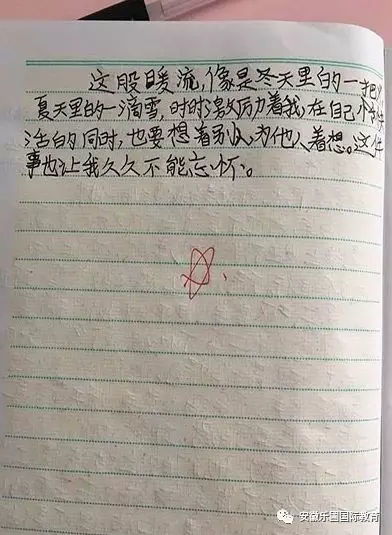 这股暖流,像是冬天里的一把
夏天里的一滴雪,时时激励着我,在自己快
活的同时,也要想着别人,为他人着想。这件
事也让我久久不能忘怀。
安徽乐国国际教育